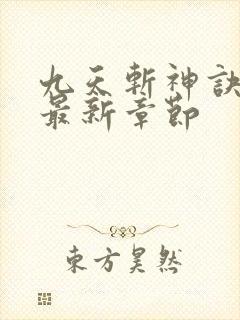 九天斬神訣
最新章節
東方昊然